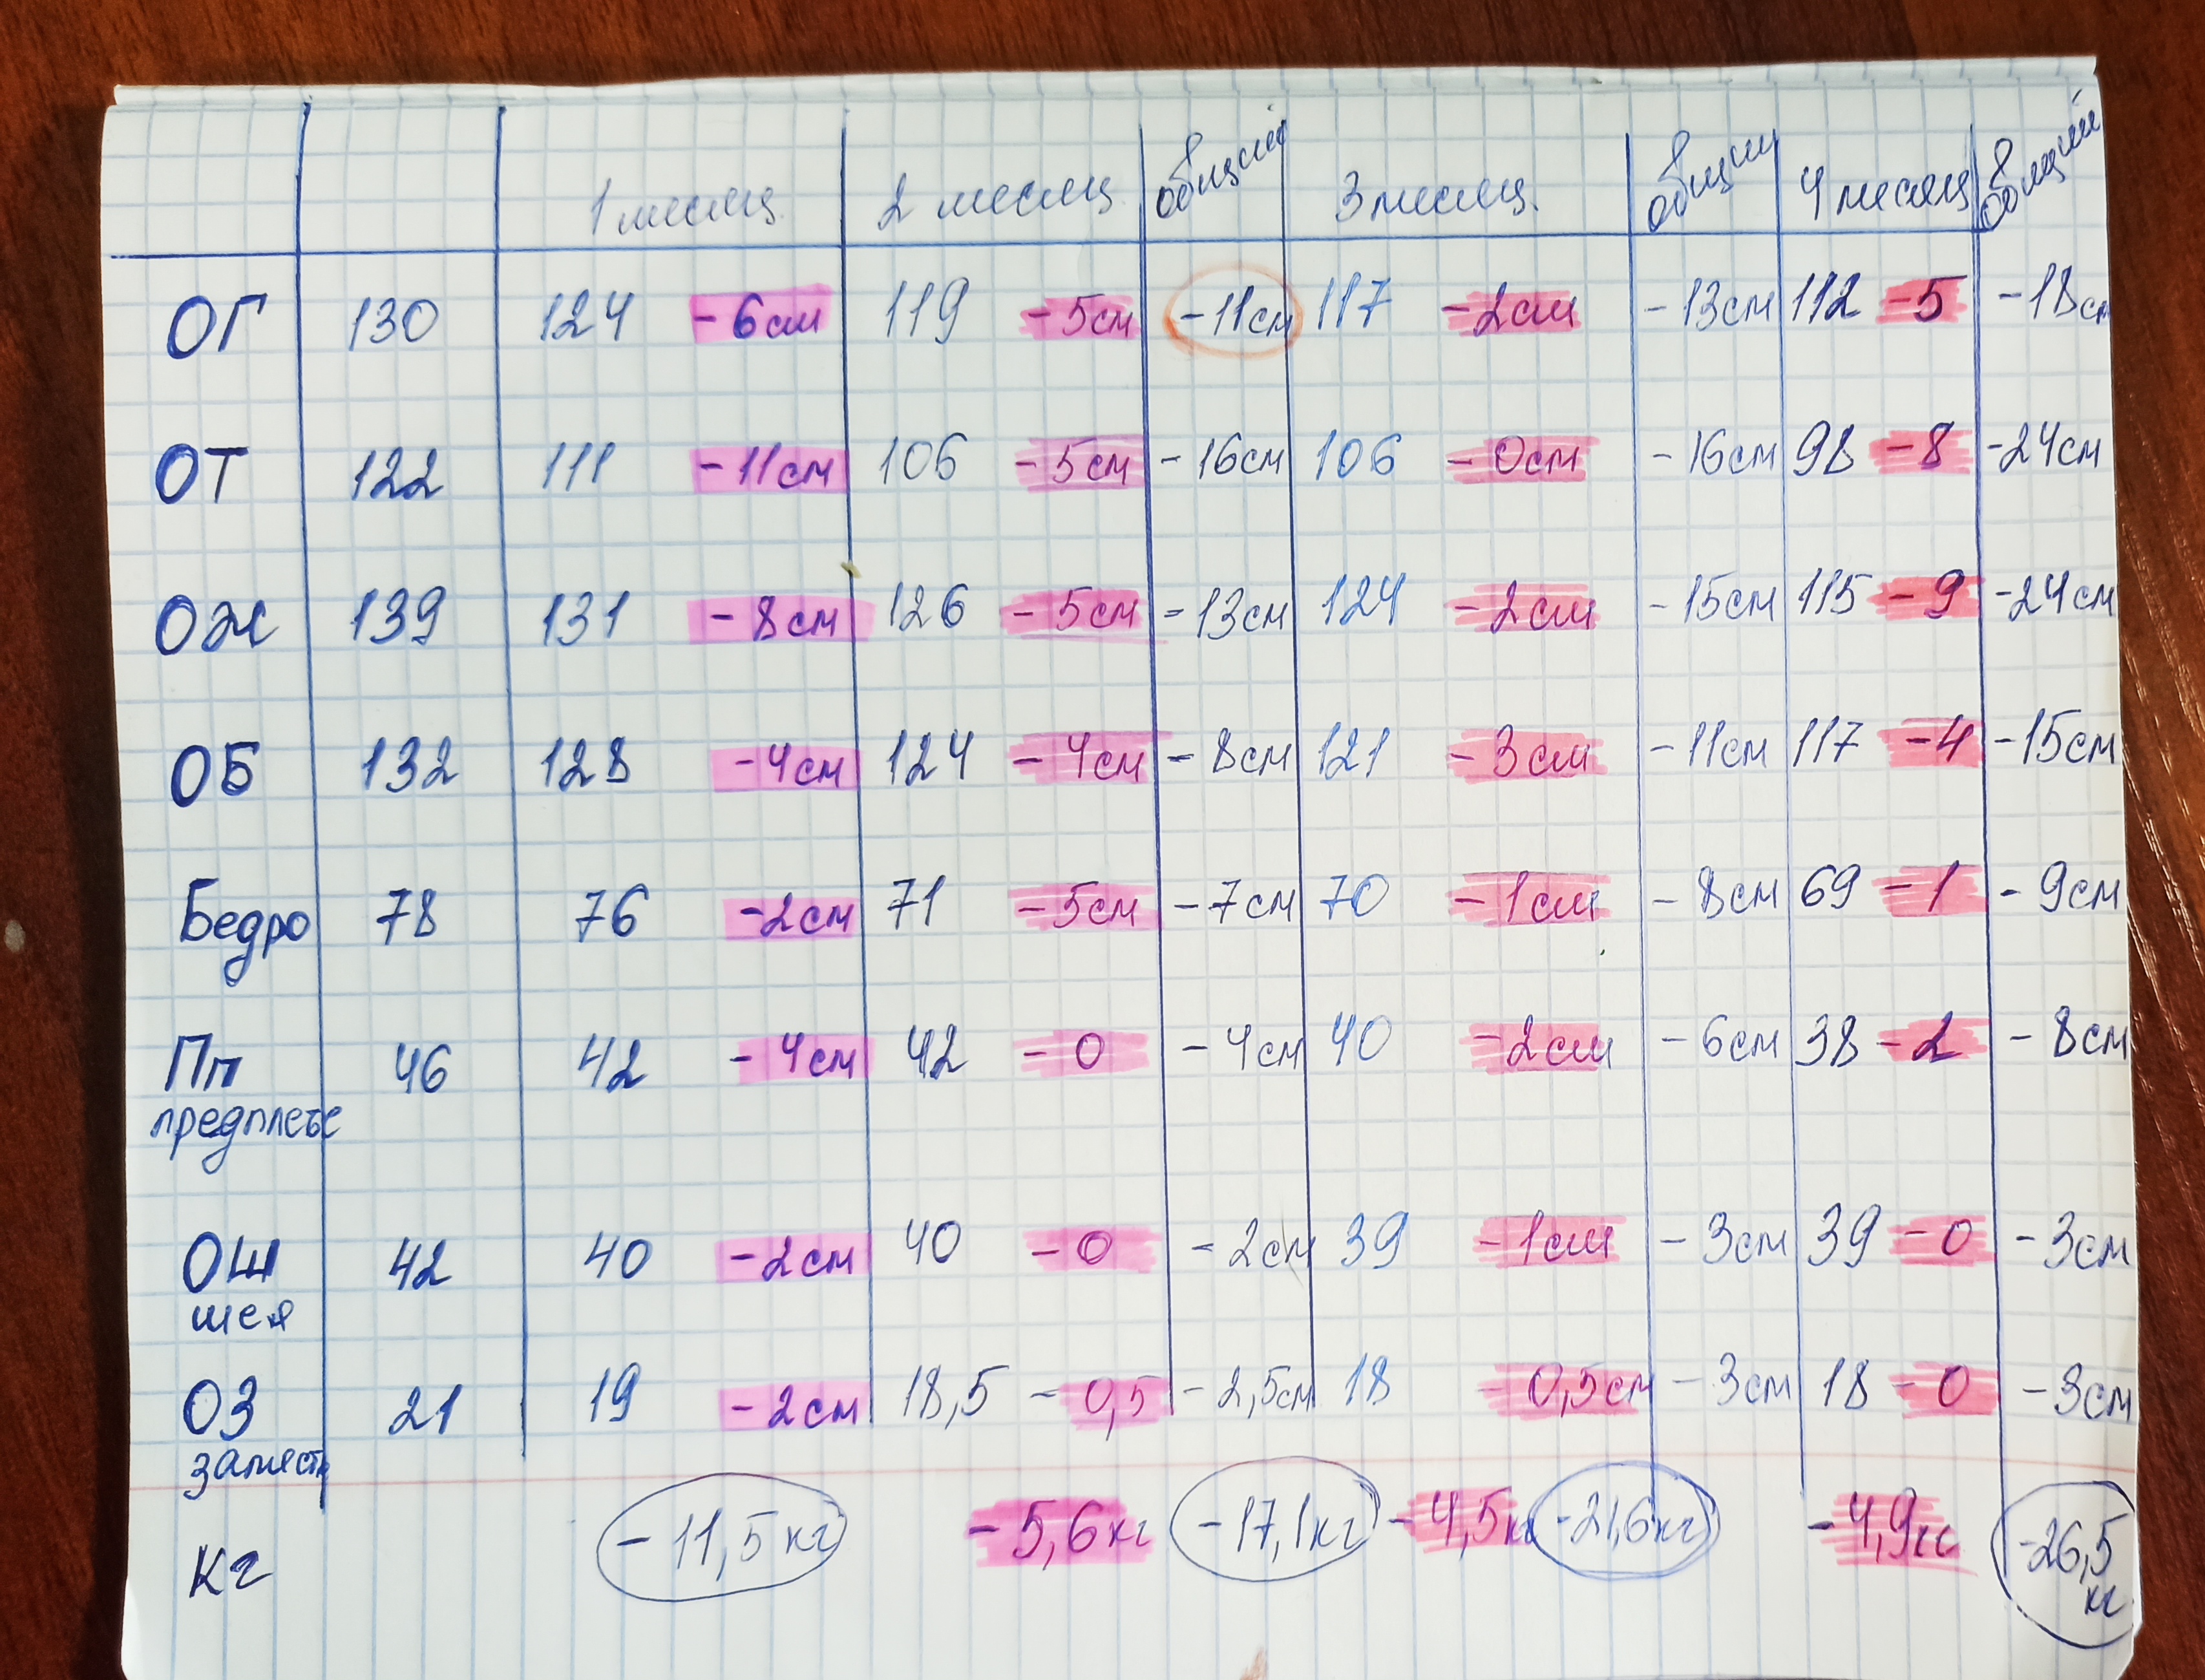 1 месяц 2 месяц общий 3 месяц. общий 4 месяц общий
ОГ 130 124 -6см 119 -5см -11см 117 -2см -13см 112 -5 -18см
ОТ 122 111 -11см 106 -5см -16см 106 -0см -16см 98 -8 -24см
ОЖ 139 131 -8см 126 -5см -13см 124 -2см -15см 115 -9 -24см
ОБ 132 128 -4см 124 -4см -8см 121 -3см -11см 117 -4 -15см
Бедро 78 76 -2см 71 -5см -7см 70 -1см -8см 69 -1 -9см
Пп 46 42 -4см 42 -0 -4см 40 -2см -6см 38 -2 -8см
предплечье
ОШ 42 40 -2см 40 -0 -2см 39 -1см -3см 39 -0 -3см
шея
ОЗ 21 19 -2см 18,5 -0,5 -2,5см 18 -0,5см -3см 18 -0 -3см
запясть
кг -11,5 кг -5,6 кг -17,1 кг -4,5 кг -21,6 кг -4,9 кг -26,5
кг